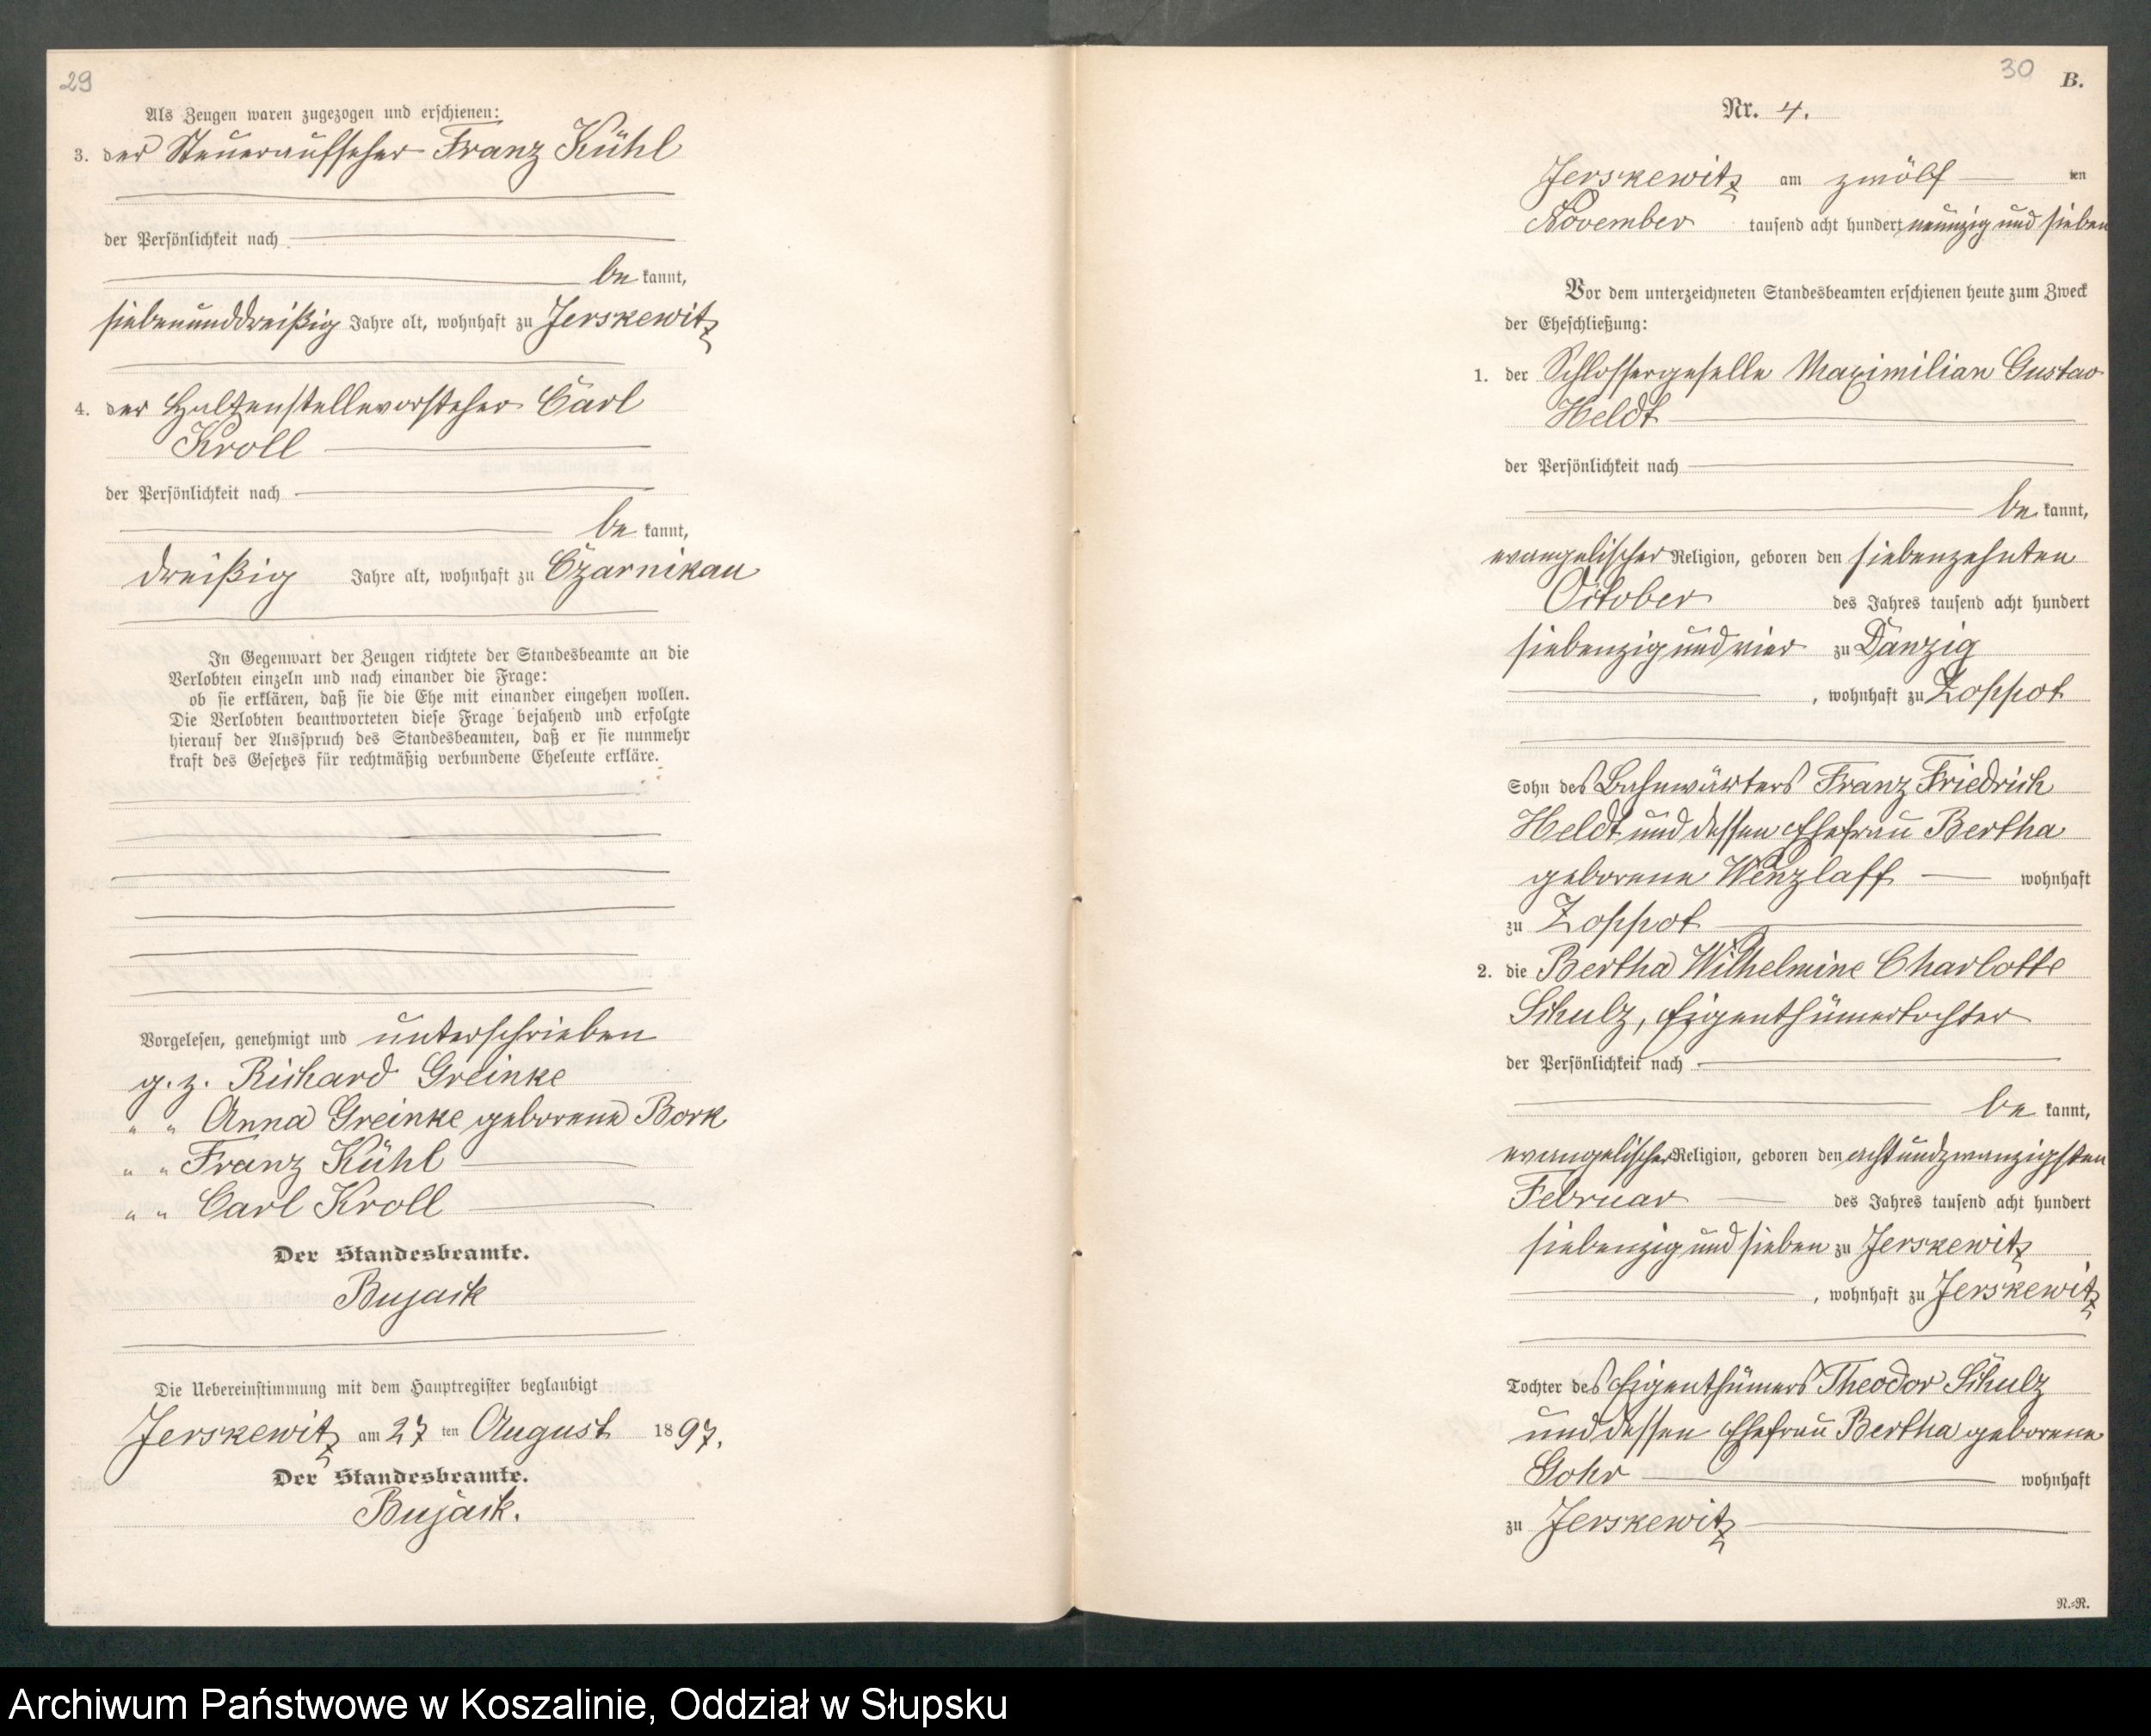 29
Als Zeugen waren zugezogen und erschienen:
3. der Steueraufseher Franz Kühl
der Persönlichkeit nach
be kannt,
siebenunddreißig Jahre alt, wohnhaft zu Jerskewitz
4. der Haltenstellevorsteher Carl
Kroll
der Persönlichkeit nach
be kannt,
dreißig Jahre alt, wohnhaft zu Czarnikau
In Gegenwart der Zeugen richtete der Standesbeamte an die
Verlobten einzeln und nach einander die Frage:
ob sie erklären, daß sie die Ehe mit einander eingehen wollen.
Die Verlobten beantworteten diese Frage bejahend und erfolgte
hierauf der Ausspruch des Standesbeamten, daß er sie nunmehr
kraft des Gesetzes für rechtmäßig verbundene Eheleute erkläre.
Vorgelesen, genehmigt und unterschrieben
g. z. Richard Greinke
" " Anna Greinke geborene Bork
" " Franz Kühl
" " Carl Kroll
Der Standesbeamte.
Bujack
Die Uebereinstimmung mit dem Hauptregister beglaubigt
Jerskewitz am 27 ten August 1897.
Der Standesbeamte.
Bujack.
30
B.
Nr. 4.
Jerskewitz am zwölf ten
November tausend acht hundert neunzig und sieben
Vor dem unterzeichneten Standesbeamten erschienen heute zum Zweck
der Eheschließung:
1. der Schlossergeselle Maximilian Gustav
Heldt
der Persönlichkeit nach
be kannt,
evangelischer Religion, geboren den siebenzehnten
October des Jahres tausend acht hundert
siebenzig und vier zu Danzig
, wohnhaft zu Zoppot
Sohn des Bahnwärters Franz Friedrich
Heldt und dessen Ehefrau Bertha
geborene Wenzlaff wohnhaft
zu Zoppot
2. die Bertha Wilhelmine Charlotte
Schulz, Eigenthümertochter
der Persönlichkeit nach
be kannt,
evangelischer Religion, geboren den achtundzwanzigsten
Februar des Jahres tausend acht hundert
siebenzig und sieben zu Jerskewitz
, wohnhaft zu Jerskewitz
Tochter des Eigenthümers Theodor Schulz
und dessen Ehefrau Bertha geborene
Gohr wohnhaft
zu Jerskewitz
N.=R.
Archiwum Państwowe w Koszalinie, Oddział w Słupsku